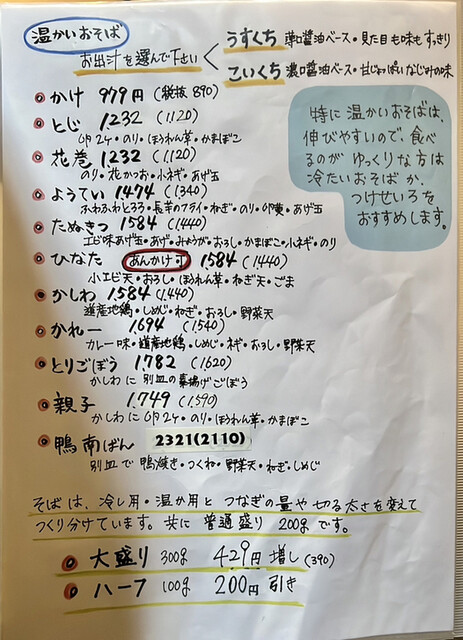 温かいおそば
お出汁を選んで下さい
うすくち 薄口醤油ベース・見た目も味もすっきり
こいくち 濃口醤油ベース・甘じょっぱいなじみの味
かけ 979円 (税抜 890)
とじ 1.232 (1.120)
卵2ケ・のり・ほうれん草・かまぼこ
花巻 1.232 (1.120)
のり・花かつお・小ネギ・あげ玉
ようてい 1.474 (1.340)
ふわふわとろろ・長芋のフライ・ねぎ・のり・卵黄・あげ玉
たぬきつ 1.584 (1.440)
エビ味あげ玉・あげ・みょうが・おろし・かまぼこ・小ネギ・のり
ひなた あんかけ 1.584 (1.440)
小エビ天・おろし・ほうれん草・ねぎ天・ごま
かしわ 1.584 (1.440)
道産地鶏・しめじ・ねぎ・おろし・野菜天
かれー 1.694 (1.540)
カレー味・道産地鶏・しめじ・ネギ・おろし・野菜天
とりごぼう 1.782 (1.620)
かしわに 別皿の素揚げごぼう
親子 1.749 (1.590)
かしわに 卵2ケ・のり・ほうれん草・かまぼこ
鴨南ばん 2321(2110)
別皿で 鴨焼き・つくね・野菜天・ねぎ・しめじ
特に 温かいおそばは、
伸びやすいので、食べ
るのが ゆっくりな方は
冷たいおそば か、
つけせいろを
おすすめします。
そばは、冷し用・温か用と つなぎの量や 切る太さを変えて
つくり分けています。共に 普通盛り 200g です。
大盛り 300g 429円 増し (390)
ハーフ 100g 200円 引き